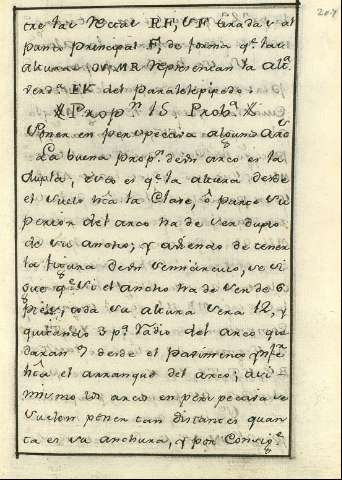 207
tre las rectas RF, VF tiradas al
punto principal F, de forma q.e las
alturas, SV MR representan la alt.ª
verd.ª EK del paralelepipedo.
Prop.n 15 Prob.ª
Poner en perspectiva algunos Arcos
La buena prop.n de un arco es la
dupla, esto es q.e la altura desde
el suelo h.ta la Clave, ô parte su
perior del arco ha de ser duplo
de su ancho; y aviendo de tener
la figura de un semicirculo, se si
gue q.e si el ancho ha de ser de 6
pies, toda su altura sera 12, y
quitando 3 p.ª radio del arco que
daran 9 desde el pavimento
h.ta el arranque del arco; asi
mismo los arcos en perspectiva se
suelen poner tan distantes quan
ta es su anchura, y por consig.te